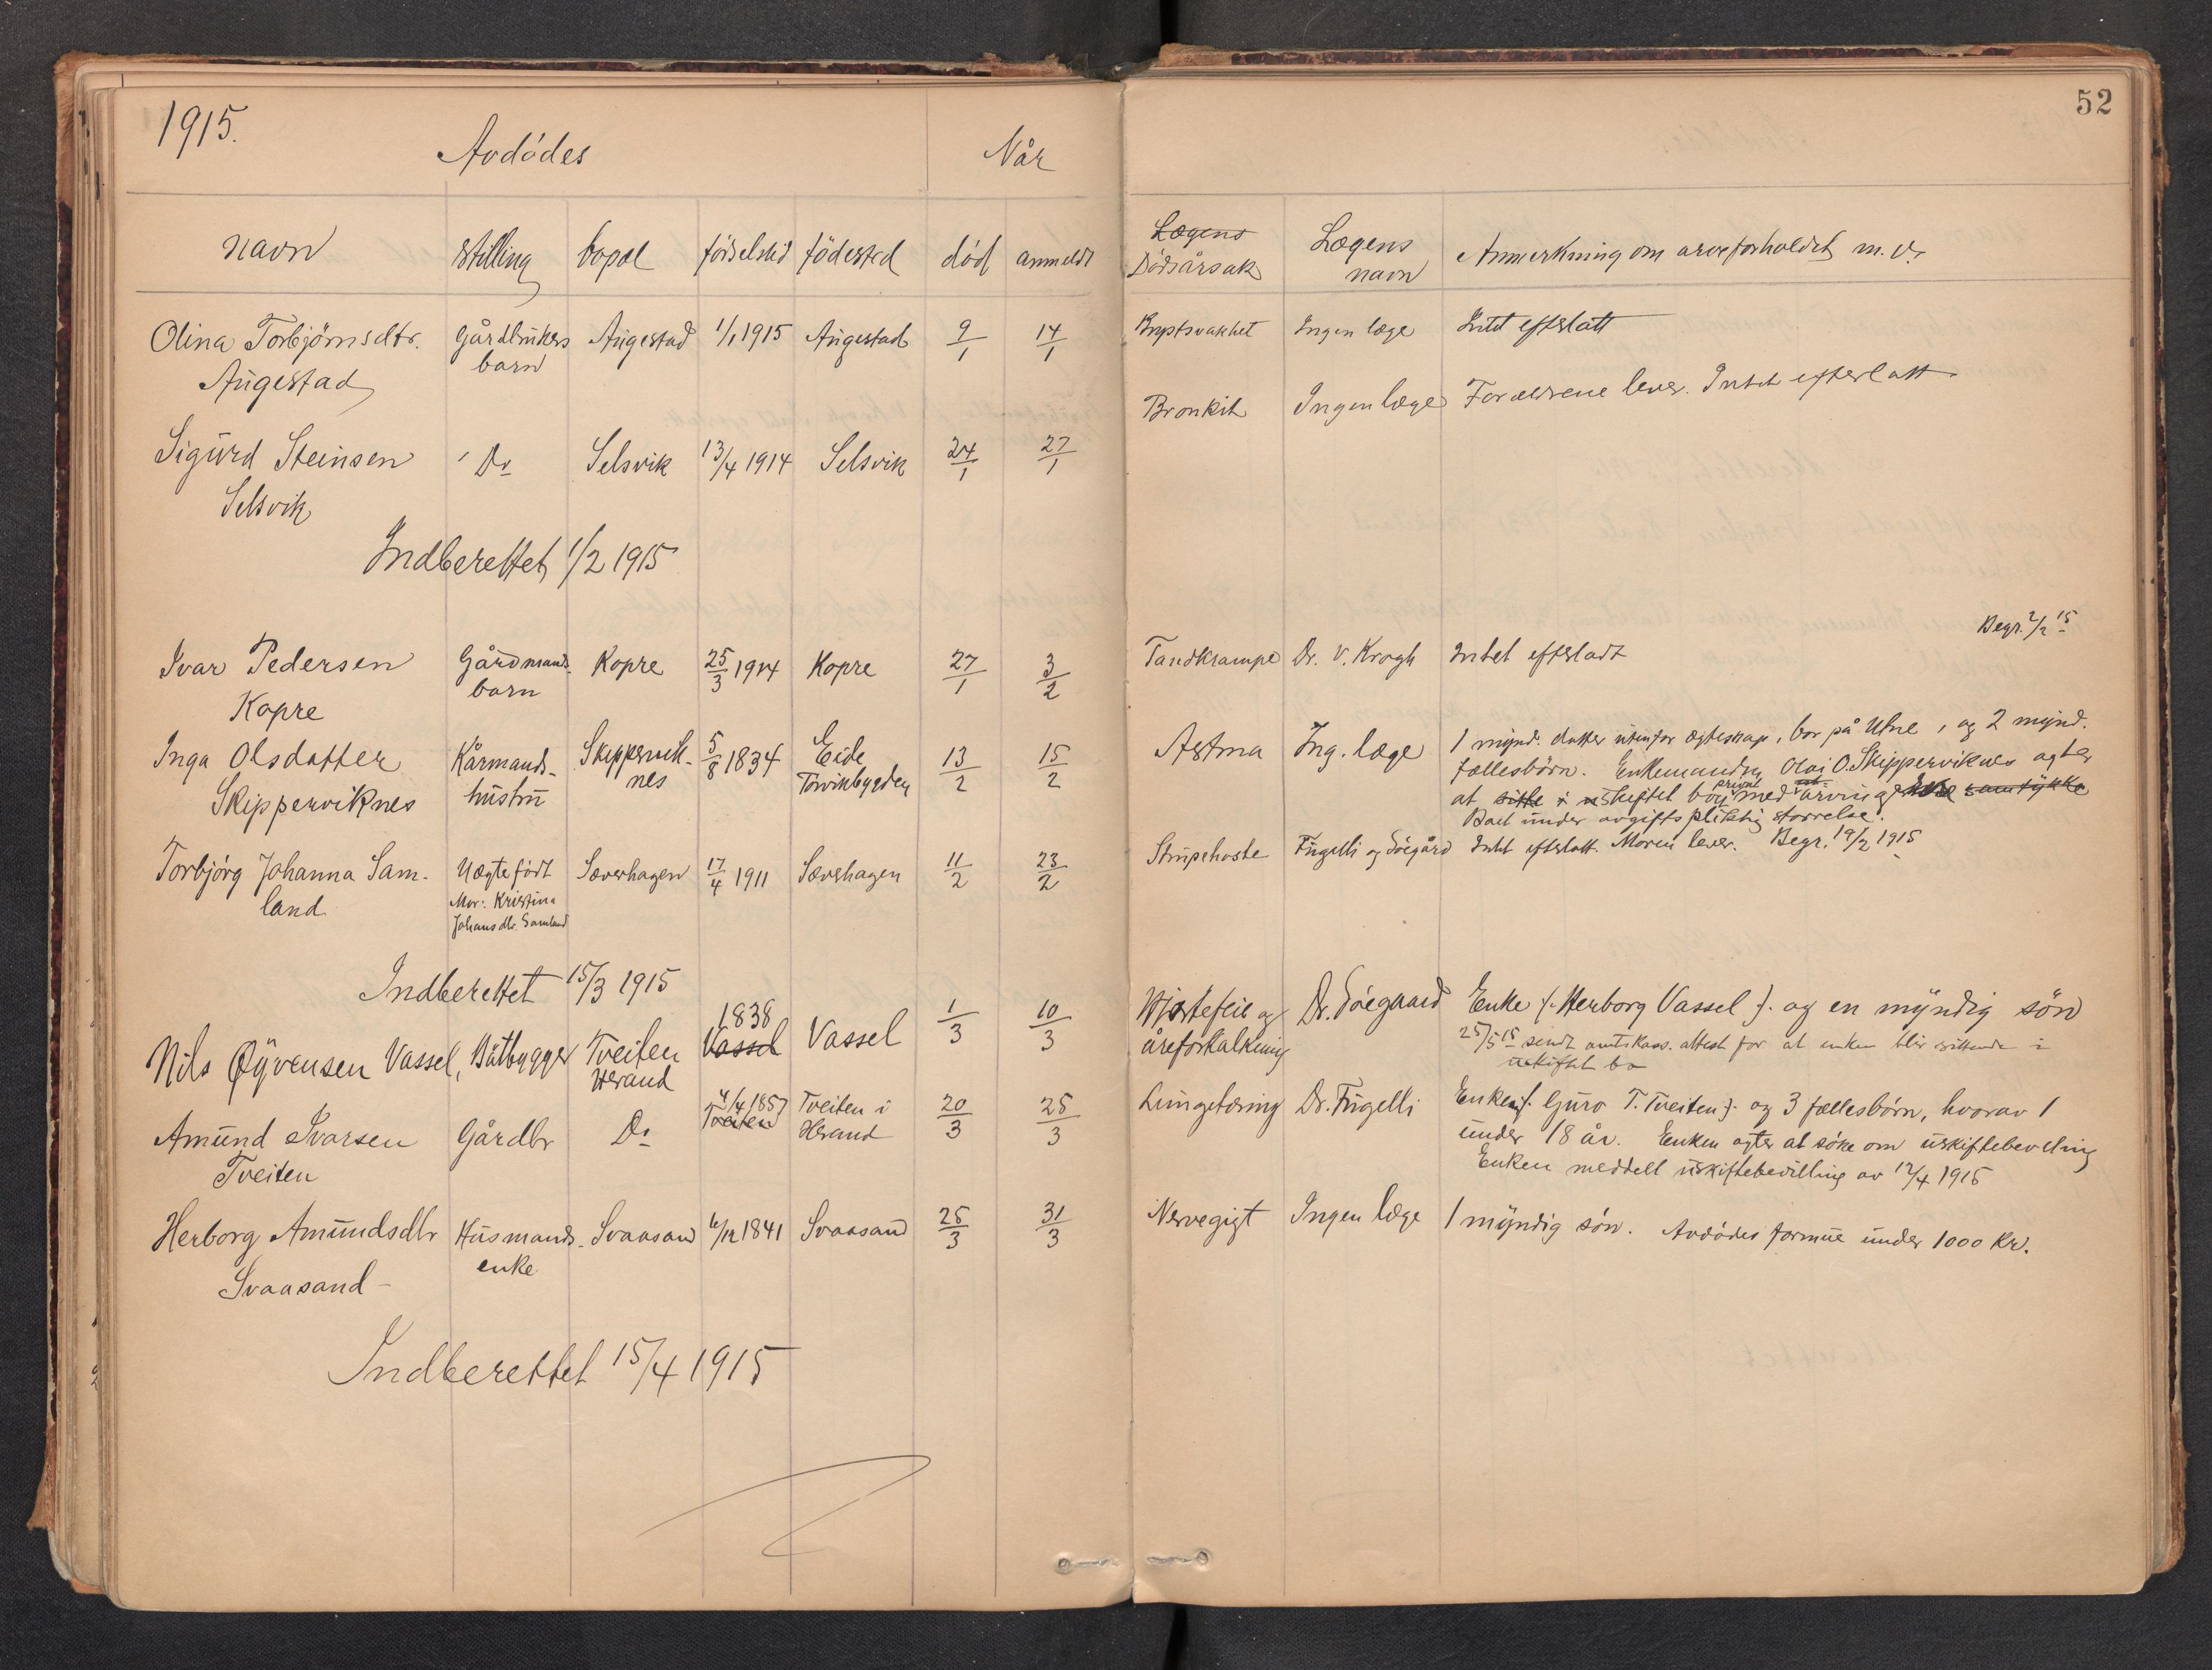 1915.
Avdödes
Når
navn stilling bopæl födselstid födested död anmeldt
Olina Torbjörnsdtr. Gårdbrukers Augestad 1/1 1915 Augestad 9/1 14/1
Augestad barn
Sigurd Steinsen Do Selsvik 13/4 1914 Selsvik 24/1 27/1
Selsvik
Indberettet 1/2 1915
Ivar Pedersen Gårdmands- Kopre 25/3 1914 Kopre 27/1 3/2
Kopre barn
Inga Olsdatter Kårmands- Skippervik- 5/8 1834 Eide 13/2 15/2
Skipperviknes hustru nes Torvikbygden
Torbjörg Johanna Sam- Uægte födt Sæverhagen 17/4 1911 Sæverhagen 11/2 23/2
land Mor: Kristina
Johansdtr. Samland
Indberettet 15/3 1915
1838
Nils Öyvensen Vassel, Båtbygger Tveiten Vassel Vassel 1/3 10/3
Herand
Amund Ivarsen Gårdbr Do 4/4 1857 Tveiten i 20/3 25/3
Tveiten Tveiten Herand
Herborg Amundsdtr Husmands- Svaasand 6/12 1841 Svaasand 25/3 31/3
Svaasand enke
Indberettet 15/4 1915
52
Lægens
Dödsårsak
Lægens
navn
Anmerkning om arveforholdet m.v.
Brystsvakhet Ingen læge Intet efterlatt
Bronkit Ingen læge Forældrene lever. Intet efterlatt
Begr. 2/2 15
Tandkrampe Dr. v. Krogh Intet efterladt
Astma Ing. læge 1 mynd. datter utenfor ægteskap, bor på Utne, og 2 mynd.
fællesbörn. Enkemanden Olai O. Skipperviknes agter
at sitte i uskiftet bo med arvingene samtykke
privat
Boet under avgiftspliktig störrelse.
Strupehoste Fugelli og Söegård Intet efterlatt. Moren lever. Begr. 19/2 1915
Hjertefeil og Dr. Söegaard Enke (: Herborg Vassel :) og en myndig sön
åreforkalkning 25/5 15 sendt amtskass. attest for at enken blir sittende i
uskiftet bo
Lungetæring Dr. Fugelli Enken (: Guro T. Tveiten :) og 3 fællesbörn, hvorav 1
under 18 år. Enken agter at söke om uskiftebevilling
Enken meddelt uskiftebevilling av 12/4 1915
Nervegigt Ingen læge 1 myndig sön. Avdödes formue under 1000 Kr.